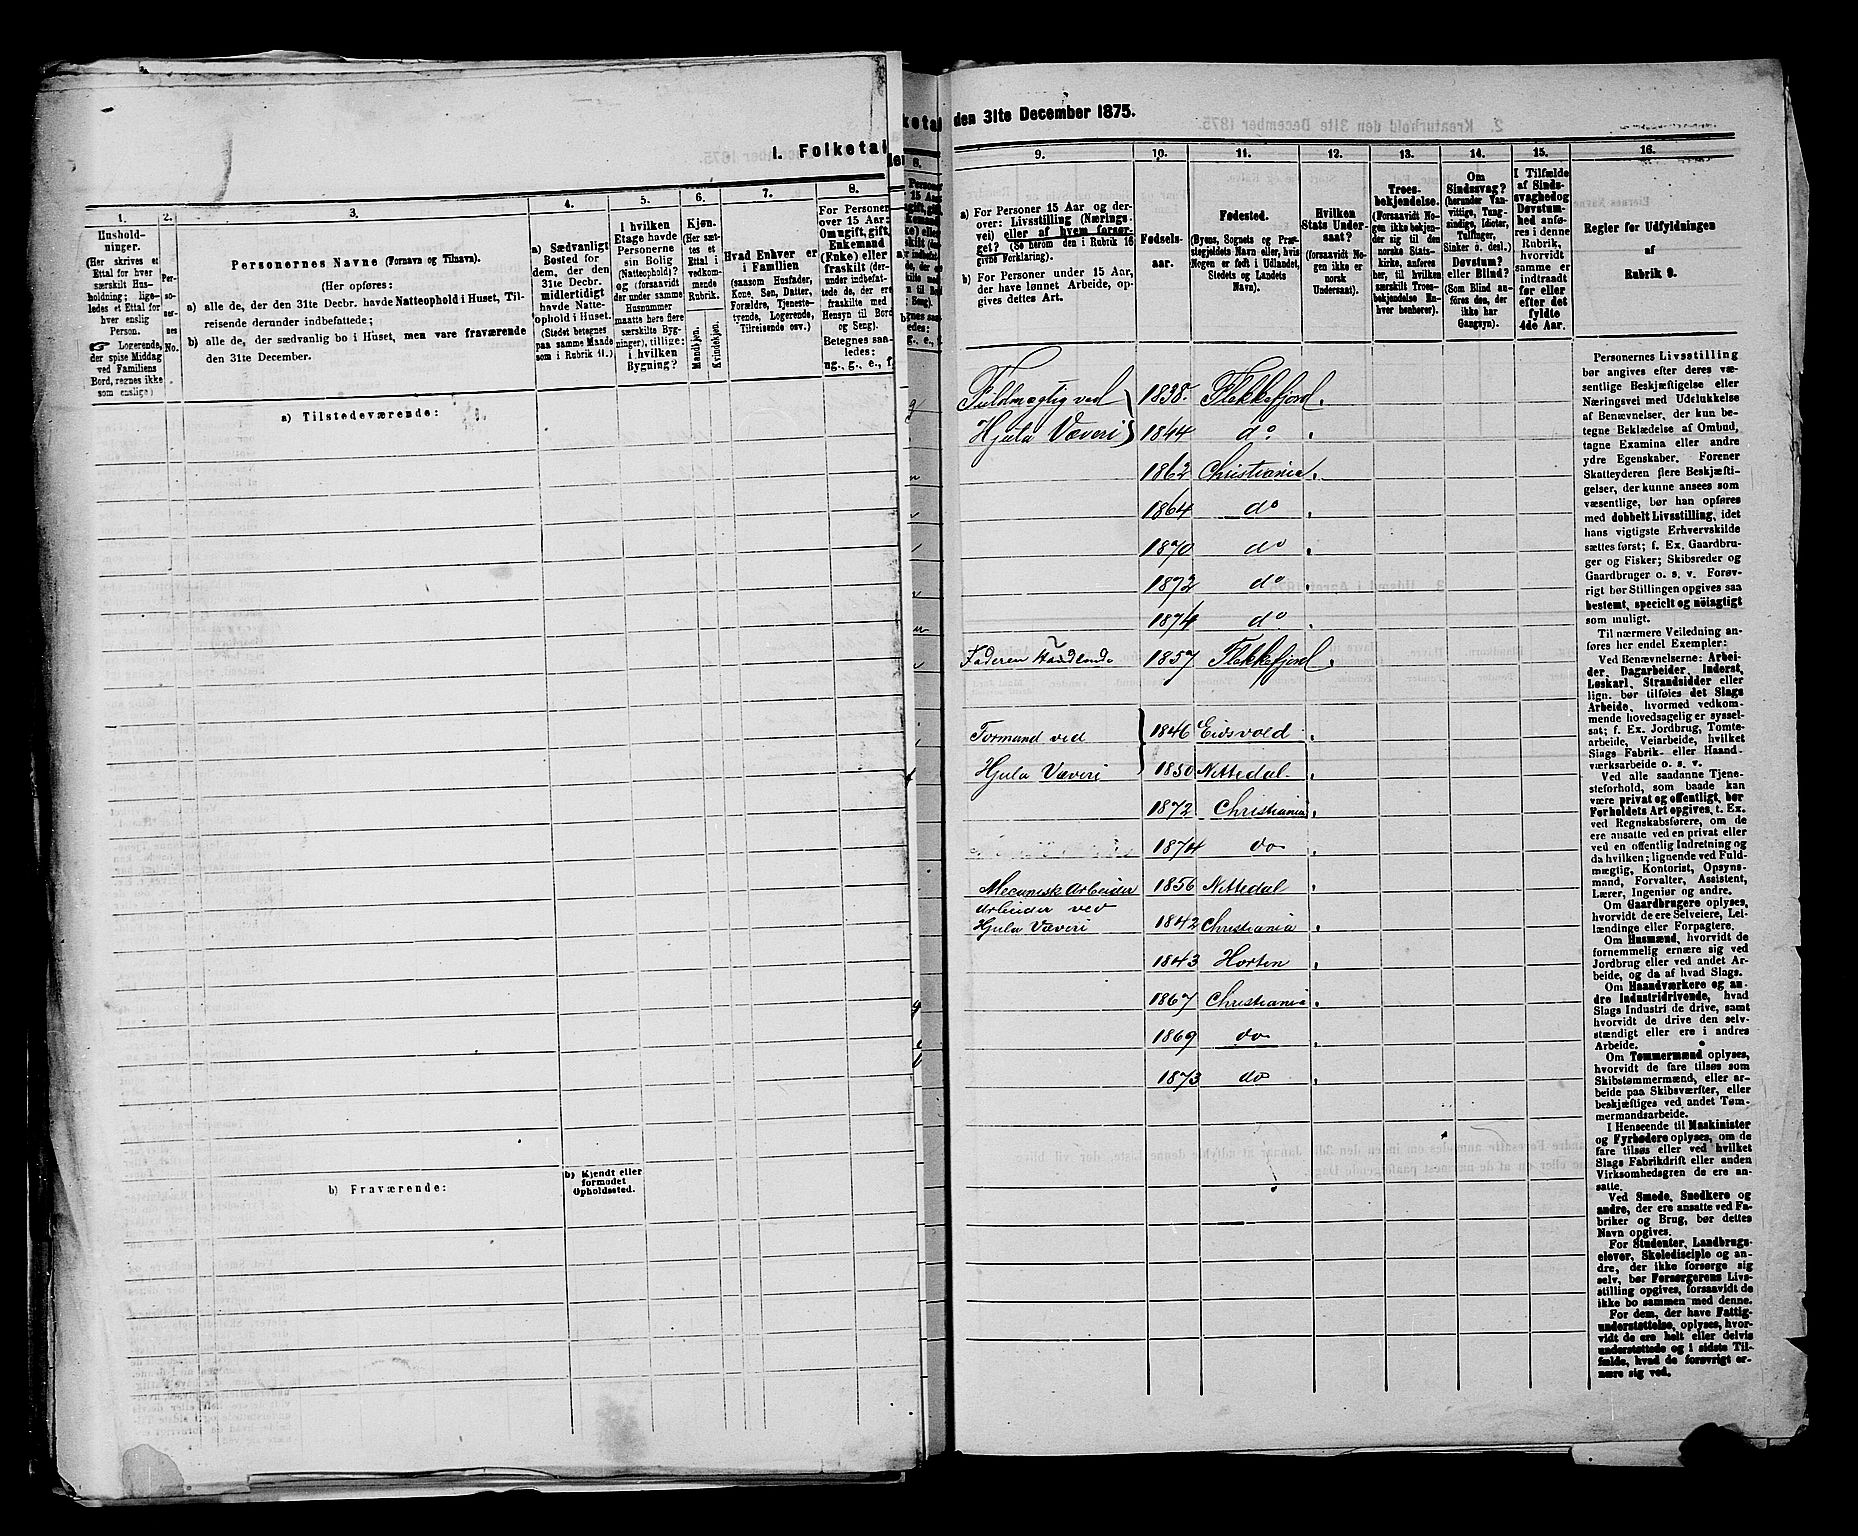 I. Folketal
1.
2.
3.
4.
5.
6.
7.
8.
Hushold-
ninger.
(Her skrives et
Ettal for hver
særskilt Hus-
holdning; lige-
ledes et Ettal for
hver enslig
Person.
☞ Logerende,
der spise Middag
ved Familiens
Bord, regnes ikke
som enslige)
Per-
so-
ner-
nes
No.
Personernes Navne (Fornavn og Tilnavn).
(Her opføres:
a) alle de, der den 31te Decbr. havde Natteophold i Huset, Til-
reisende derunder indbefattede;
b) alle de, der sædvanlig bo i Huset, men vare fraværende
den 31te December.
a) Sædvanligt
Bosted for
dem, der den
31te Decbr.
midlertidigt
havde Natte-
ophold i Huset.
(Stedet betegnes
paa samme Maade
som i Rubrik 11.)
I hvilken
Etage havde
Personerne
sin Bolig
(Natteophold)?
og (forsaavidt
der under samme
Husnummer
maatte høre flere
særskilte Byg-
ninger), tillige:
i hvilken
Bygning?
Kjøn.
(Her sæt-
tes et
Ettal i
vedkom-
mende
Rubrik.
Mandkjøn.
Kvindekjøn.
Hvad Enhver er
i Familien
(saasom Husfader,
Kone, Søn, Datter,
Forældre, Tjeneste-
tyende, Logerende,
Tilreisende osv.)
For Personer
over 15 Aar:
Om ugift, gift,
Enkemand
(Enke) eller
fraskilt (der-
under indbefat-
tede de, der ere
fraskilte med
Hensyn til Bord
og Seng).
Betegnes saa-
ledes:
ug., g., e., f.
a) Tilstedeværende:
b) Fraværende:
b) Kjendt eller
formodet
Opholdssted.
den 31te December 1875.
9.
10.
11.
12.
13.
14.
15.
16.
a) For Personer 15 Aar og der-
over: Livsstilling (Nærings-
vei) eller af hvem forsør-
get? (Se herom den i Rubrik 16
givne Forklaring).
b) For Personer under 15 Aar,
der have lønnet Arbeide, op-
gives dettes Art.
Fødsels-
aar.
Fødested.
(Byens, Sognets og Præ-
stegjeldets Navn eller, hvis
Nogen er født i Udlandet,
Stedets og Landets
Navn).
Hvilken
Stats Under-
saat?
(forsaavidt No-
gen ikke er
norsk
Undersaat).
Troes-
bekjendelse.
(Forsaavidt No-
gen ikke bekjen-
der sig til den
norske Stats-
kirke, anføres
her, til hvilken
særskilt Troes-
bekjendelse En-
hver henhører).
Om
Sindssvag?
(herunder Van-
vittige, Tung-
sindige, Idioter,
Tullinger,
Sinker o. desl.)
Døvstum?
eller Blind?
(Som Blind an-
føres den, der
ikke har
Gangsyn).
I Tilfælde
af Sinds-
svaghed og
Døvstum-
hed anfø-
res i denne
Rubrik,
hvorvidt
samme er
indtraadt
før eller
efter det
fyldte
4de Aar.
Regler for Udfyldningen
af
Rubrik 9.
Fuldmægtig ved 1838. Flekkefjord.
Hjula Væveri 1844 do
1862 Christiania
1864 do
1870 do
1872 do
1874 do
Faderen Handlende 1857 Flekkefjord
Formand ved 1846 Eidsvold
Hjula Væveri 1850 Nittedal
1872 Christiania
1874 do
Mecanisk Arbeider 1856 Nittedal
Arbeider ved
Hjula Væveri 1842 Christiania
1843 Horten
1867 Christiania
1869 do
1873 do
Personernes Livsstilling
bør angives efter deres væ-
sentlige Beskjæftigelse eller
Næringsvei med Udelukkelse
af Benævnelser, der kun be-
tegne Beklædelse af Ombud,
tagne Examina eller andre
ydre Egenskaber. Forener
Skatteyderen flere Beskjæfti-
gelser, der kunne ansees som
væsentlige, bør han opføres
med dobbelt Livsstilling, idet
hans vigtigste Erhvervskilde
sættes først; f. Ex. Gaardbru-
ger og Fisker; Skibsreder og
Gaardbruger o. s. v. Forøv-
rigt bør Stillingen opgives saa
bestemt, specielt og nöiagtigt
som muligt.
Til nærmere Veiledning an-
føres her endel Exempler:
Ved Benævnelserne: Arbei-
der, Dagarbeider, Inderst,
Løskarl, Strandsidder eller
lign. bør tilføies det Slags
Arbeide, hvormed vedkom-
mende hovedsagelig er syssel-
sat; f. Ex. Jordbrug, Tomte-
arbeide, Veiarbeide, hvilket
Slags Fabrik- eller Haand-
værksarbeide o. s. v.
Ved alle saadanne Tjene-
steforhold, som baade kan
være privat og offentligt, bør
Forholdets Art opgives, t. Ex.
ved Regnskabsførere, om de
ere ansatte ved en privat eller
ved en offentlig Indretning og
da hvilken; lignende ved Fuld-
mægtig, Kontorist, Opsyns-
mand, Forvalter, Assistent,
Lærer, Ingeniør og andre.
Om Gaardbrugere oplyses,
hvorvidt de ere Selveiere, Lei-
lændinge eller Forpagtere.
Om Husmænd, hvorvidt de
fornemmelig ernære sig ved
Jordbrug eller ved andet Ar-
beide, og da af hvad Slags.
Om Haandværkere og an-
dre Industridrivende, hvad
Slags Industri de drive, samt
hvorvidt de drive den selv-
stændigt eller ere i andres
Arbeide.
Om Tømmermænd oplyses,
hvorvidt de fare tilsøs som
Skibstømmermænd, eller ar-
beide paa Skibsværfter, eller
beskjæftiges ved andet Tøm-
mermandsarbeide.
I Henseende til Maskinister
og Fyrbødere oplyses, om de
fare tilsøs eller ved hvilket
Slags Fabrikdrift eller anden
Virksomhedsgren de ere an-
satte.
Ved Smede, Snedkere og
andre, der ere ansatte ved Fa-
briker og Brug, bør dettes
Navn opgives.
For Studenter, Landbrugs-
elever, Skoledisciple og an-
dre, der ikke forsørge sig
selv, bør Forsørgerens Livs-
stilling opgives, forsaavidt de
ikke bo sammen med denne.
For dem, der have Fattig-
understøttelse, oplyses, hvor-
vidt de ere helt eller delvis
understøttede og i sidste Til-
fælde, hvad de forøvrigt er-
nære sig ved.